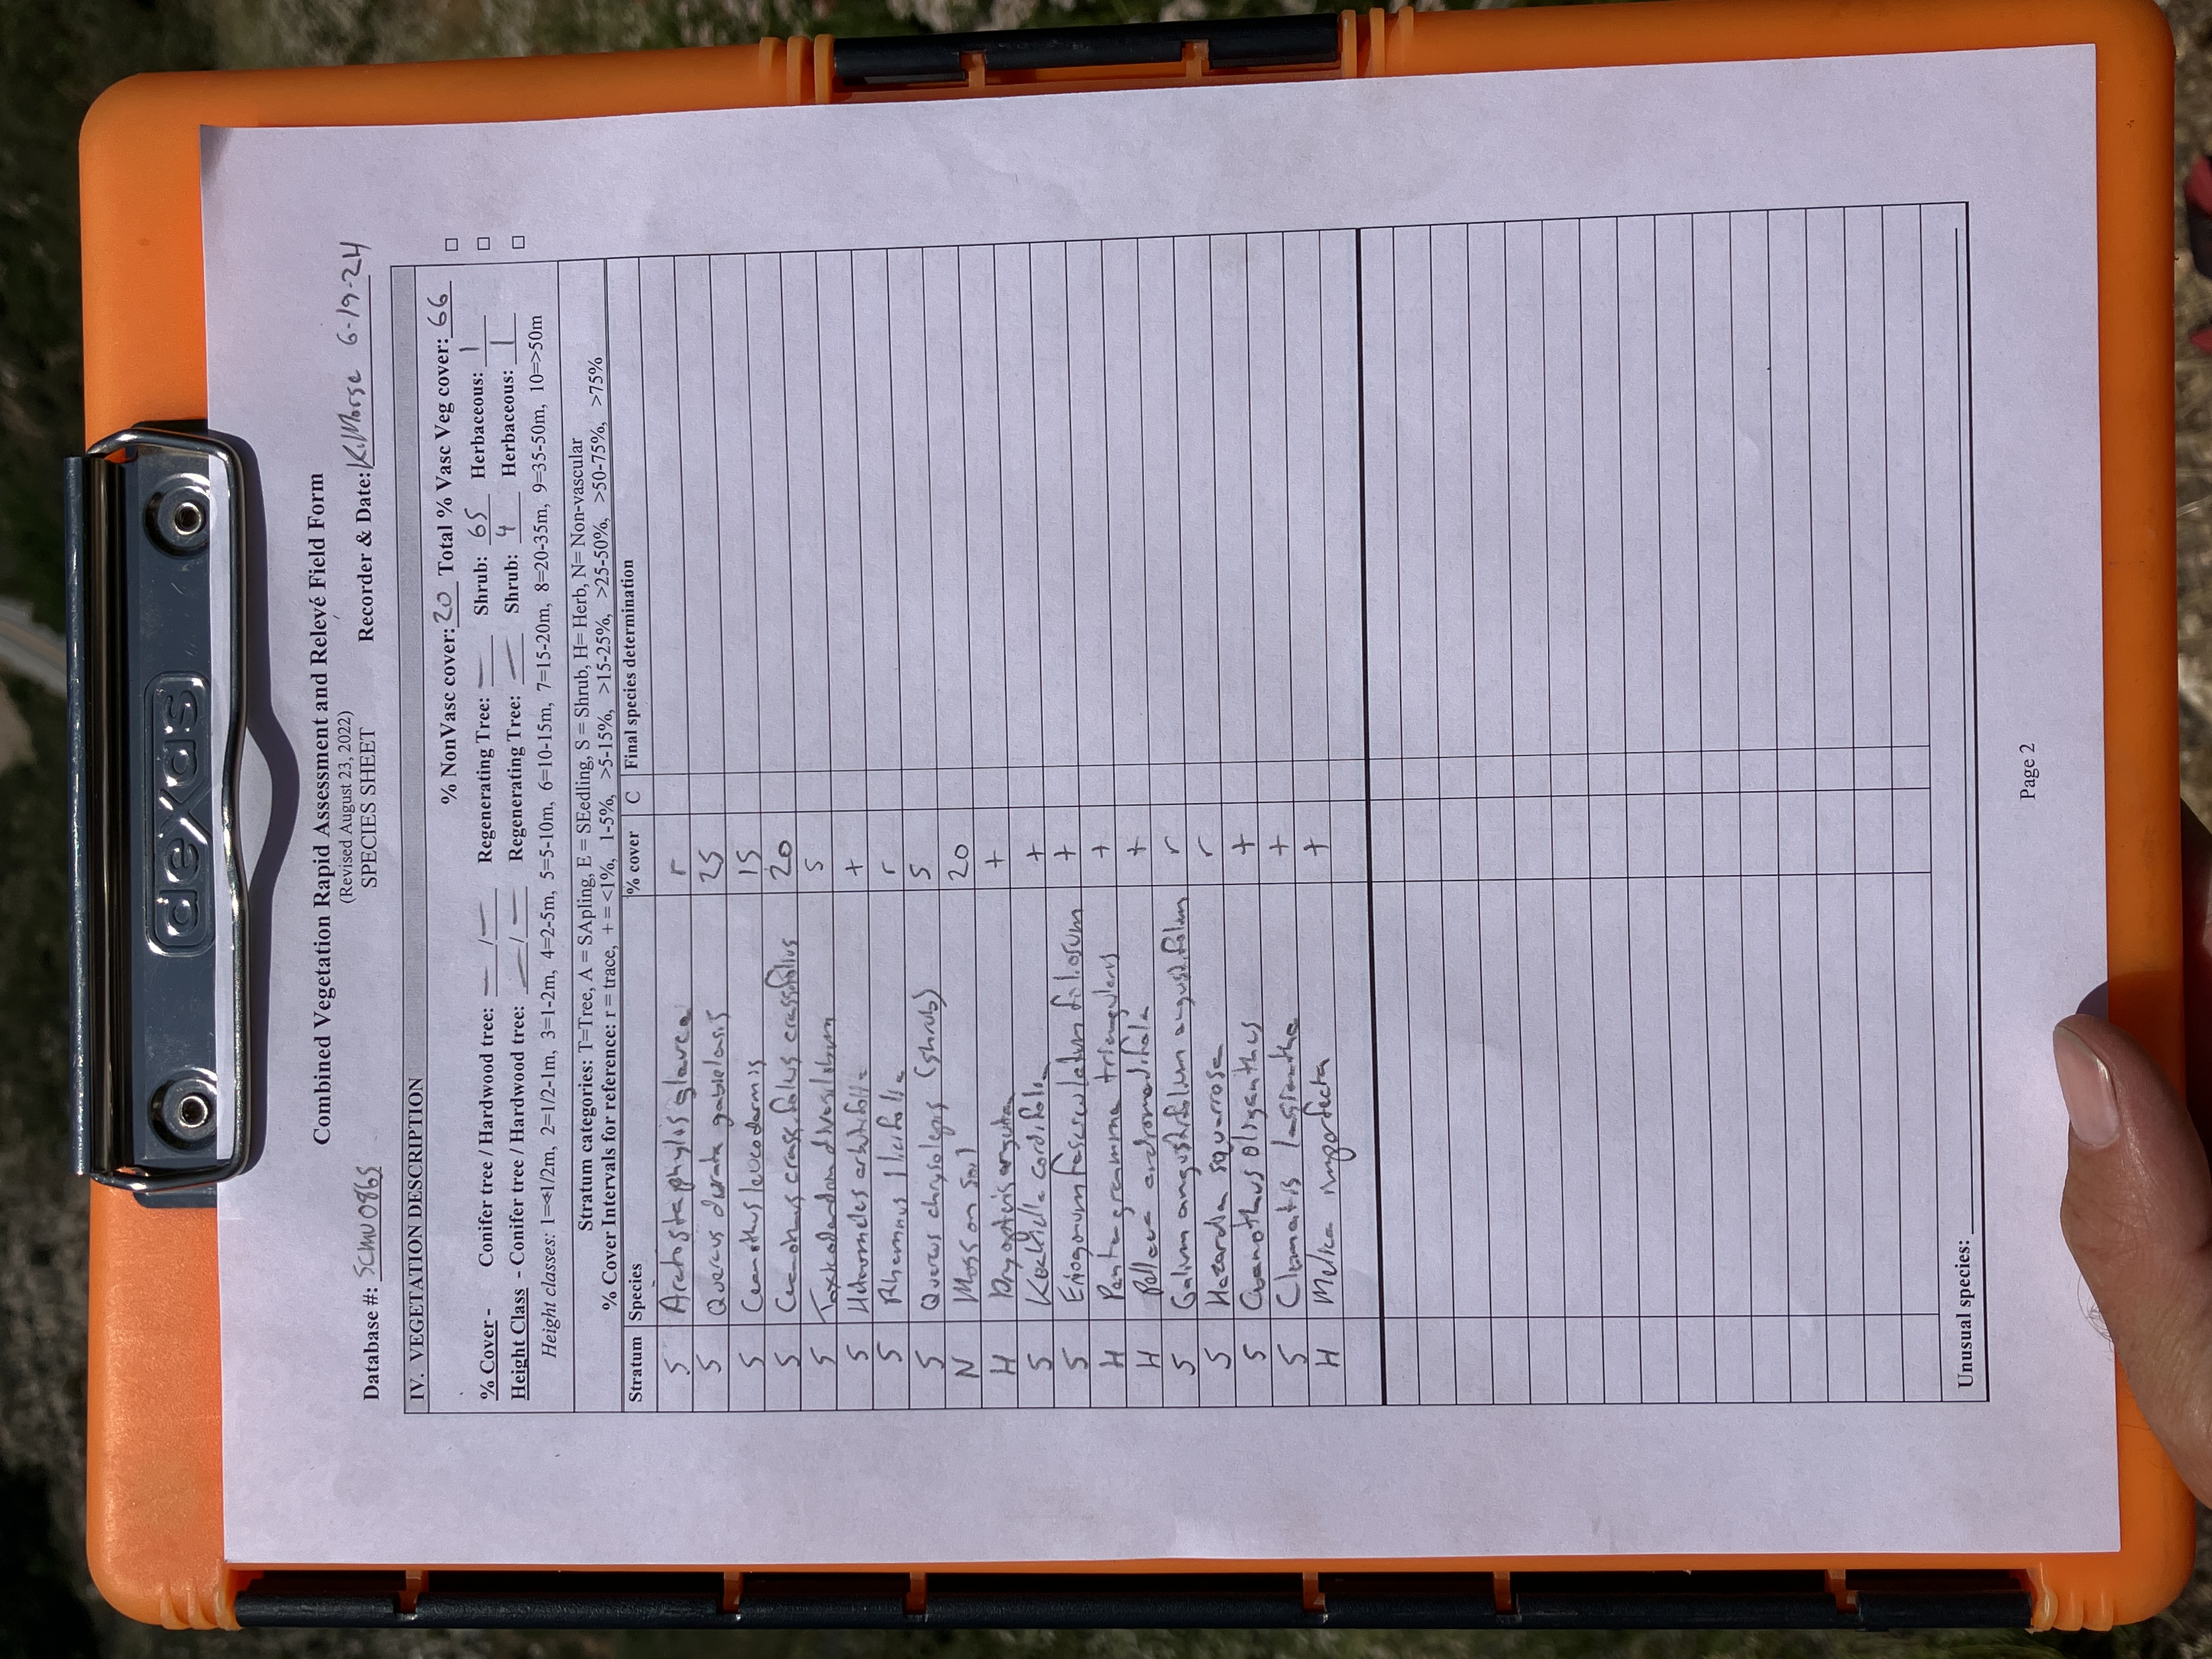 dexas
Combined Vegetation Rapid Assessment and Relevé Field Form
(Revised August 23, 2022)
SPECIES SHEET
Database #: SCMU0865 Recorder & Date: K. Morse 6-19-24
IV. VEGETATION DESCRIPTION
% NonVasc cover: 20 Total % Vasc Veg cover: 66 □
% Cover - Conifer tree / Hardwood tree: — / — Regenerating Tree: — Shrub: 65 Herbaceous: 1 □
Height Class - Conifer tree / Hardwood tree: — / — Regenerating Tree: — Shrub: 4 Herbaceous: 1 □
Height classes: 1=<1/2m, 2=1/2-1m, 3=1-2m, 4=2-5m, 5=5-10m, 6=10-15m, 7=15-20m, 8=20-35m, 9=35-50m, 10=>50m
Stratum categories: T=Tree, A = SApling, E = SEedling, S = Shrub, H= Herb, N= Non-vascular
% Cover Intervals for reference: r = trace, + = <1%, 1-5%, >5-15%, >15-25%, >25-50%, >50-75%, >75%
Stratum Species % cover C Final species determination
S Arctostaphylos glauca r
S Quercus durata gabrielensis 25
S Ceanothus leucodermis 15
S Ceanothus crassifolius crassifolius 20
S Toxicodendron diversilobum 5
S Heteromeles arbutifolia +
S Rhamnus ilicifolia r
S Quercus chrysolepis (shrub) 5
N Moss on soil 20
H Dryopteris arguta +
S Keckiella cordifolia +
S Eriogonum fasciculatum foliolosum +
H Pentagramma triangularis +
H Pellaea andromedifolia +
S Galium angustifolium angustifolium r
S Hazardia squarrosa r
S Ceanothus oliganthus +
S Clematis lasiantha +
H Melica imperfecta +
Unusual species:
Page 2